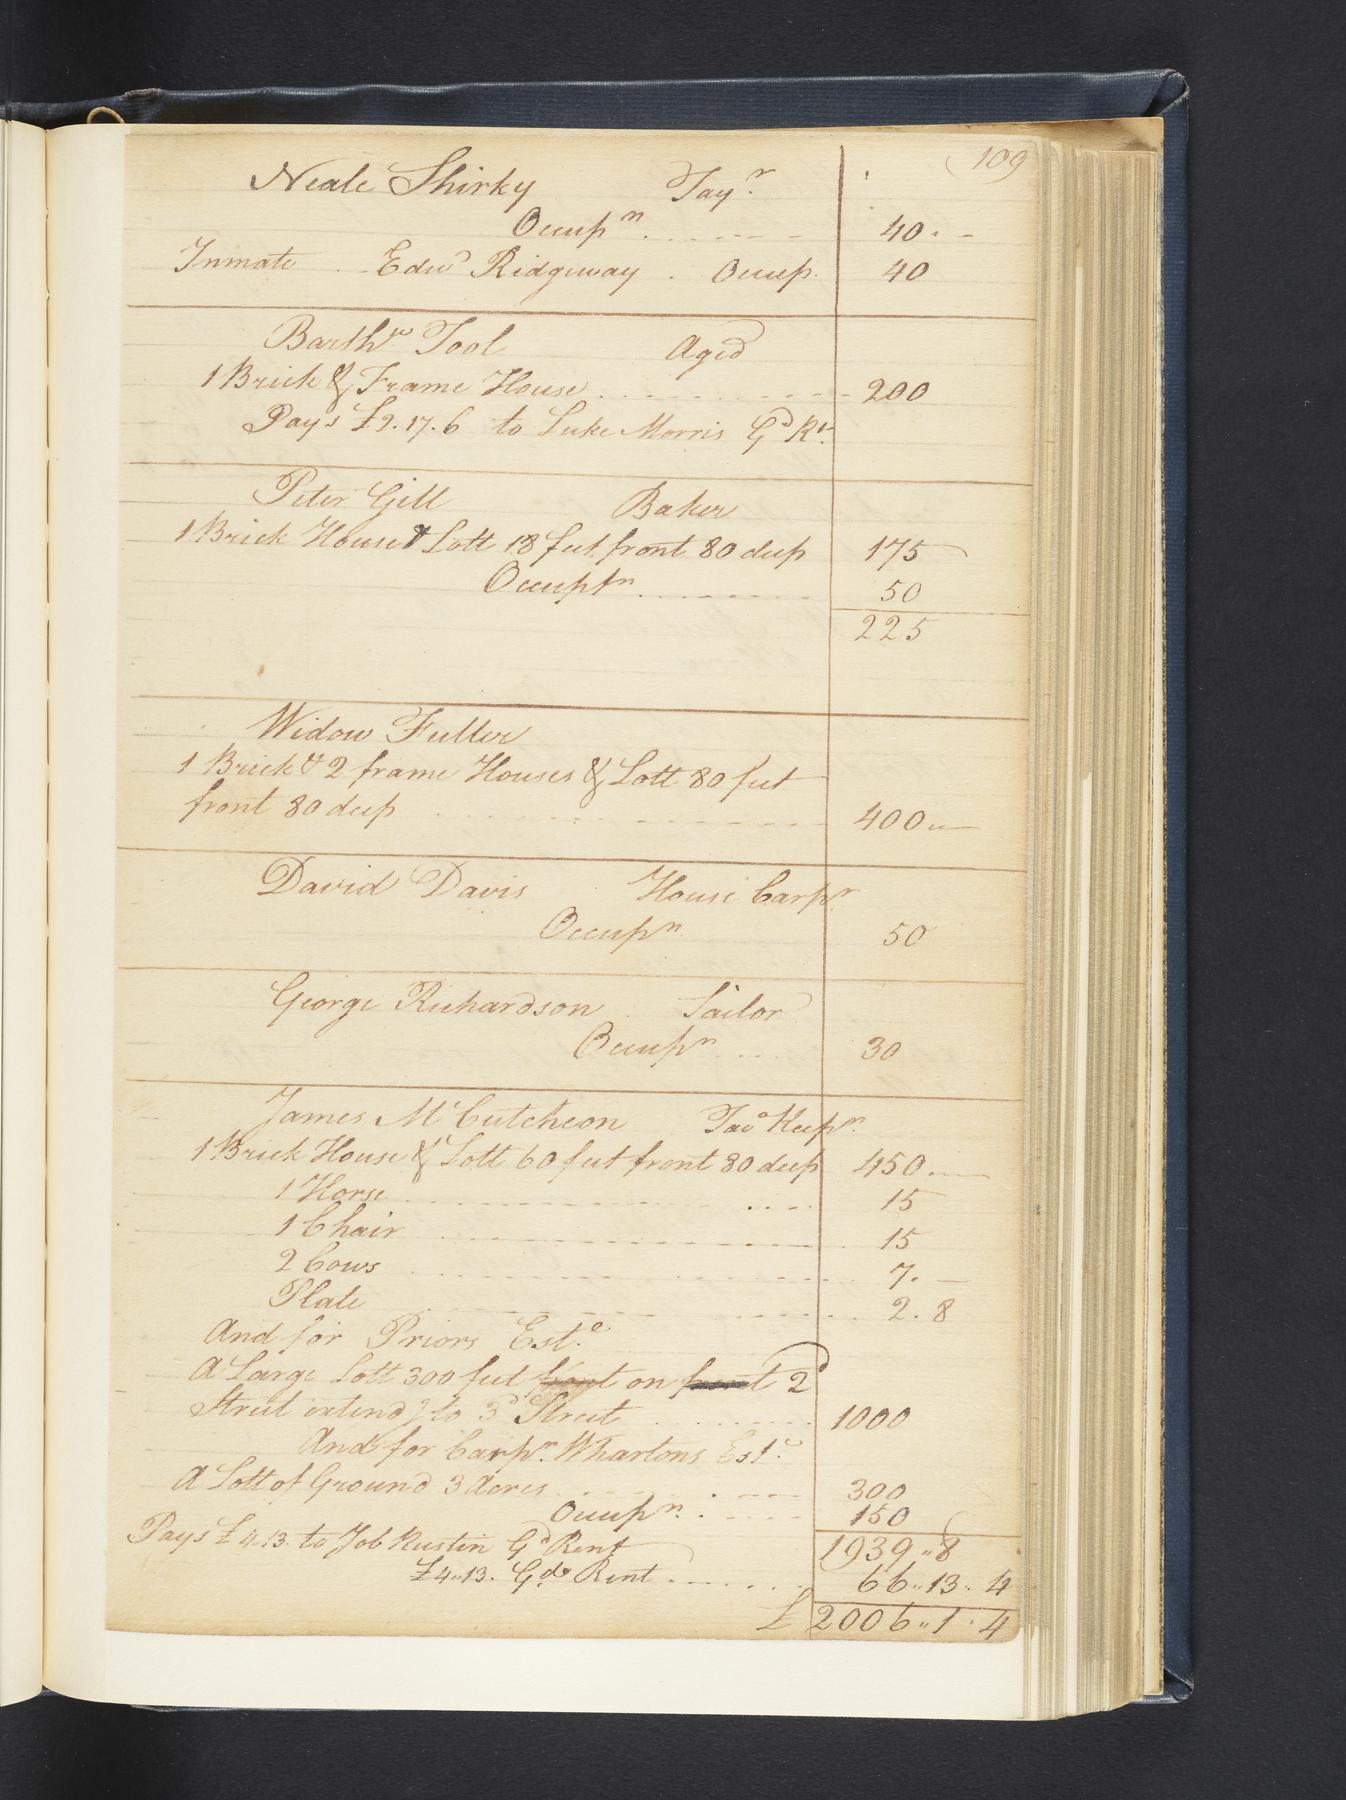 109
Neale Shirky Tayr.
Occupn. 40
Inmate Edwd Ridgeway . Occup. 40
Barthw Tool Aged
1 Brick & Frame House 200
Pays £2.17.6 to Luke Morris Gd Rt.
Peter Gill Baker
1 Brick House & Lott 18 feet front 80 deep 175
Occuptn 50
225
Widow Fuller
1 Brick & 2 frame Houses & Lott 80 feet
front 80 deep 400
David Davis House Carpr
Occupn 50
George Richardson Sailor
Occupn 30
James McCutcheon Tav Keepr.
1 Brick House & Lott 60 feet front 80 deep 450
1 Horse 15
1 Chair 15
2 Cows 7.
Plate 2.8
And for Priors Este.
A Large Lott 300 feet front on front 2d
Street extendg to 3d Street 1000
And for Carpr. Whartons Este.
A Lott of Ground 3 Acres 300
Occupn. 150
Pays £4.13. to Job Rustin Gd Rent 1939..8
£4..13. Gd. Rent 66..13.4
£ 2006..1.4